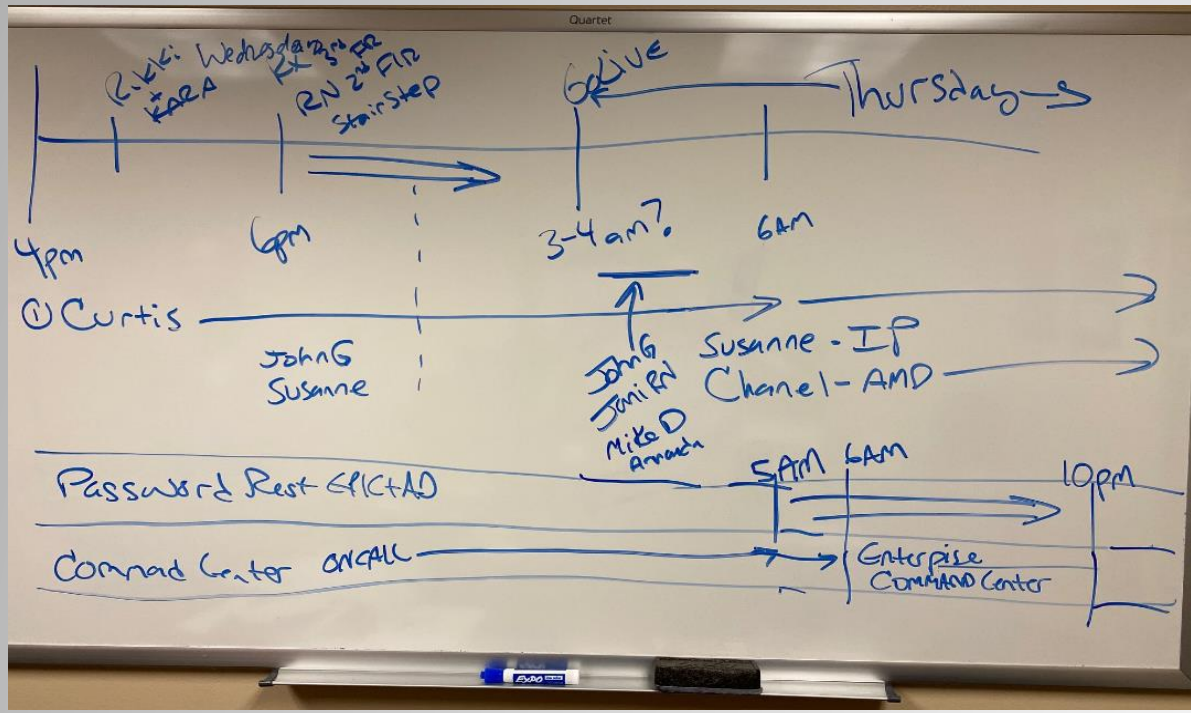 Quartet
Rikki Wednesday
+
KARA
RX 3rd FlR
RN 2nd FlR
StairStep
GoLive
Thursday
4pm
6pm
3-4 am?
6AM
① Curtis
JohnG
Susanne
JohnG
Joni RN
Mike D
Amanda
Susanne - IP
Chanel - AMD
Password Rest EPIC+AD
5AM 6AM
10pm
Commad Center ONCALL
Enterpise
COMMAND Center
EXPO